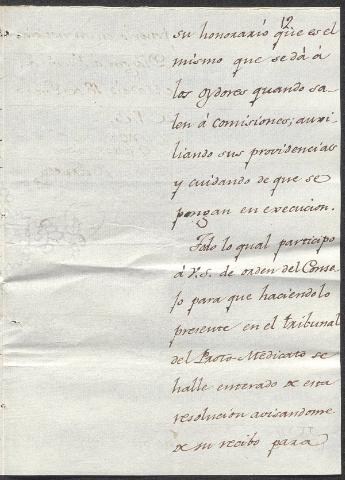 12
su honorario que es el
mismo que se dá á
los oydores quando sa-
len á comisiones; auxi-
liando sus providencias
y cuidando de que se
pongan en execucion.
Todo lo qual participo
á V.S. de orden del Conse-
jo para que haciendolo
presente en el tribunal
del Proto-Medicato se
halle enterado de esta
resolucion avisandome
de su recibo para